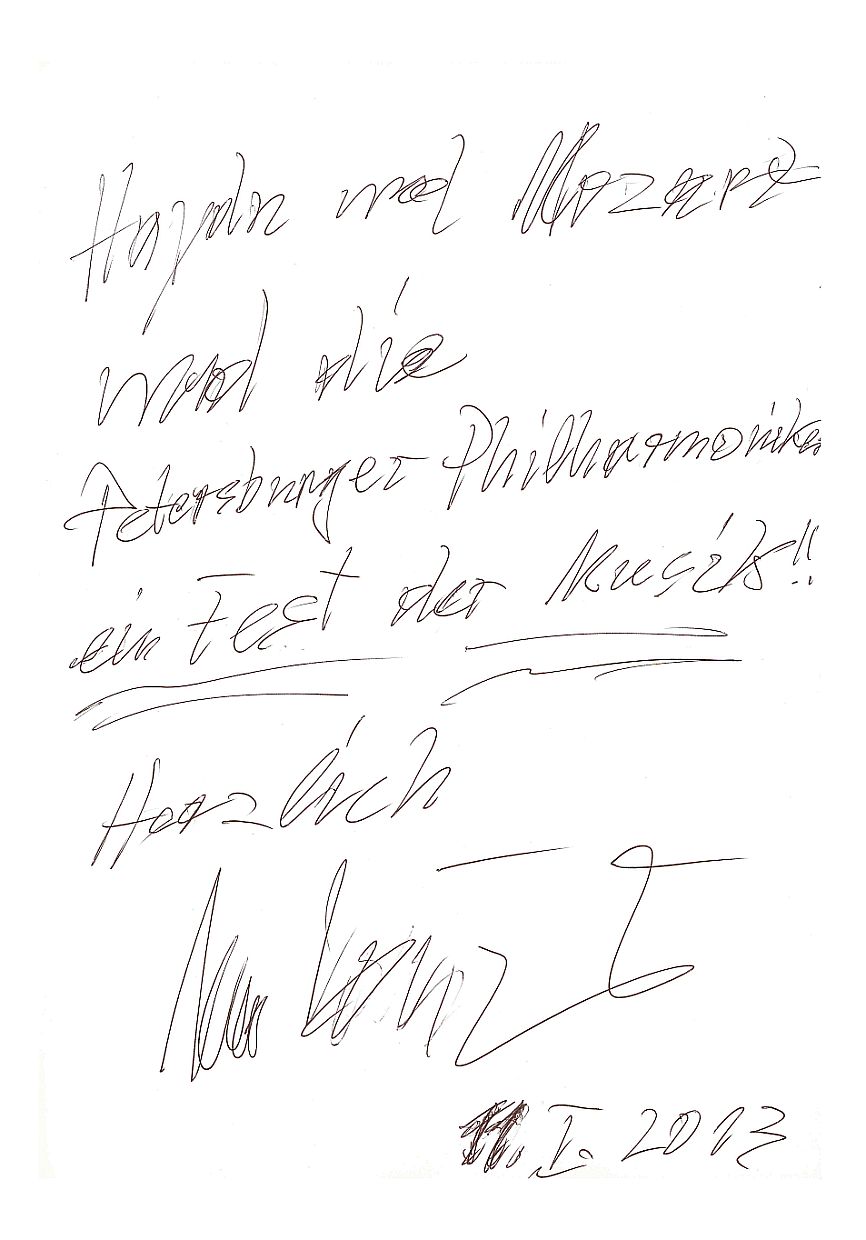 Haydn und Mozart
und die
Petersburger Philharmoniker
ein Fest der Musik!!
Herzlich
11. I. 2013